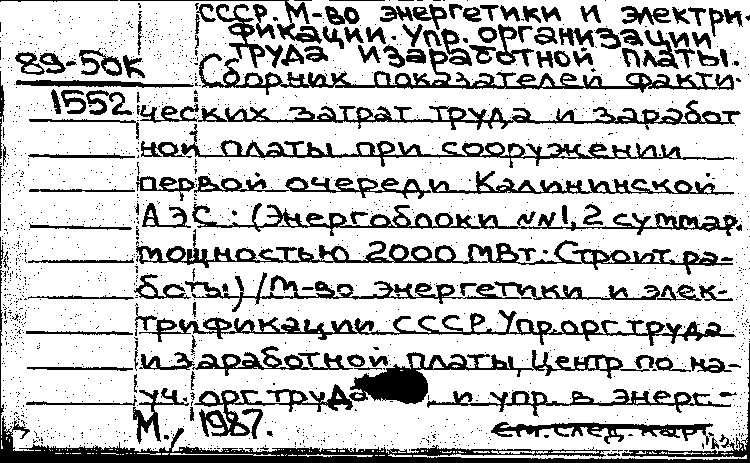 СССР. М-во энергетики и электри-
фикации. Упр. организации
труда и заработной платы.
89-50к
Сборник показателей факти-
1552
ческих затрат труда и заработ
ной платы при сооружении
первой очереди Калининской
АЭС: (Энергоблоки №№1,2 суммар.
мощностью 2000 МВт: Строит. ра-
боты) / М-во энергетики и элек-
трификации СССР. Упр. орг. труда
и заработной платы, Центр по на-
уч. орг. труда и упр. в энерг. -
М., 1987.
см. след. карт.